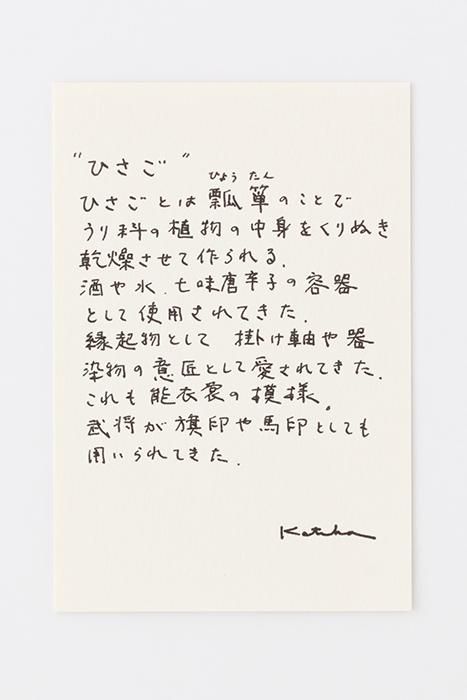 "ひさご"
ひょうたん
ひさごとは瓢箪のことで
うり科の植物の中身をくりぬき
乾燥させて作られる.
酒や水、七味唐辛子の容器
として使用されてきた.
縁起物として 掛け軸や器
染物の意匠として愛されてきた.
これも能衣裳の模様。
武将が旗印や馬印としても
用いられてきた.